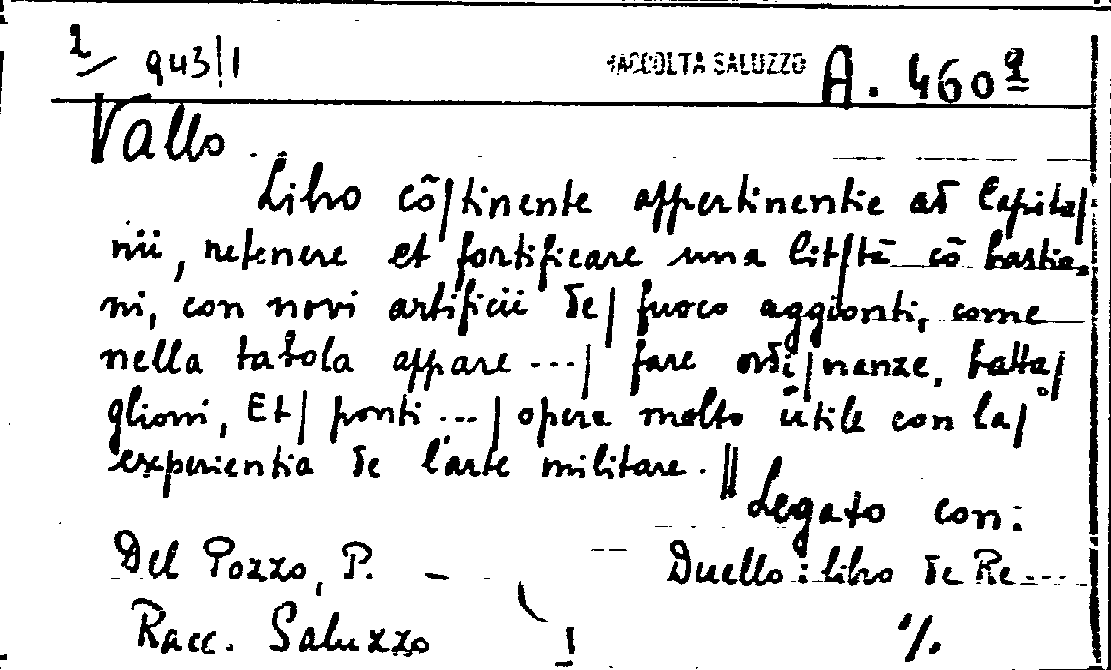 1/ 943|1 RACCOLTA SALUZZO A. 460 9
Vallo.
Libro cõ|tinente appertinentie ad Capita|
nii, retenere et fortificare una Cit|tã cõ bastio-
ni, con novi artificii de| fuoco aggionti, come
nella tabola appare ...| fare ordi|nanze, batta|
glioni, Et| ponti ...| opera molto utile con la|
experientia de l'arte militare. || Legato con:
Del Pozzo, P. — Duello: libro de Re....
Racc. Saluzzo 1 ·/.